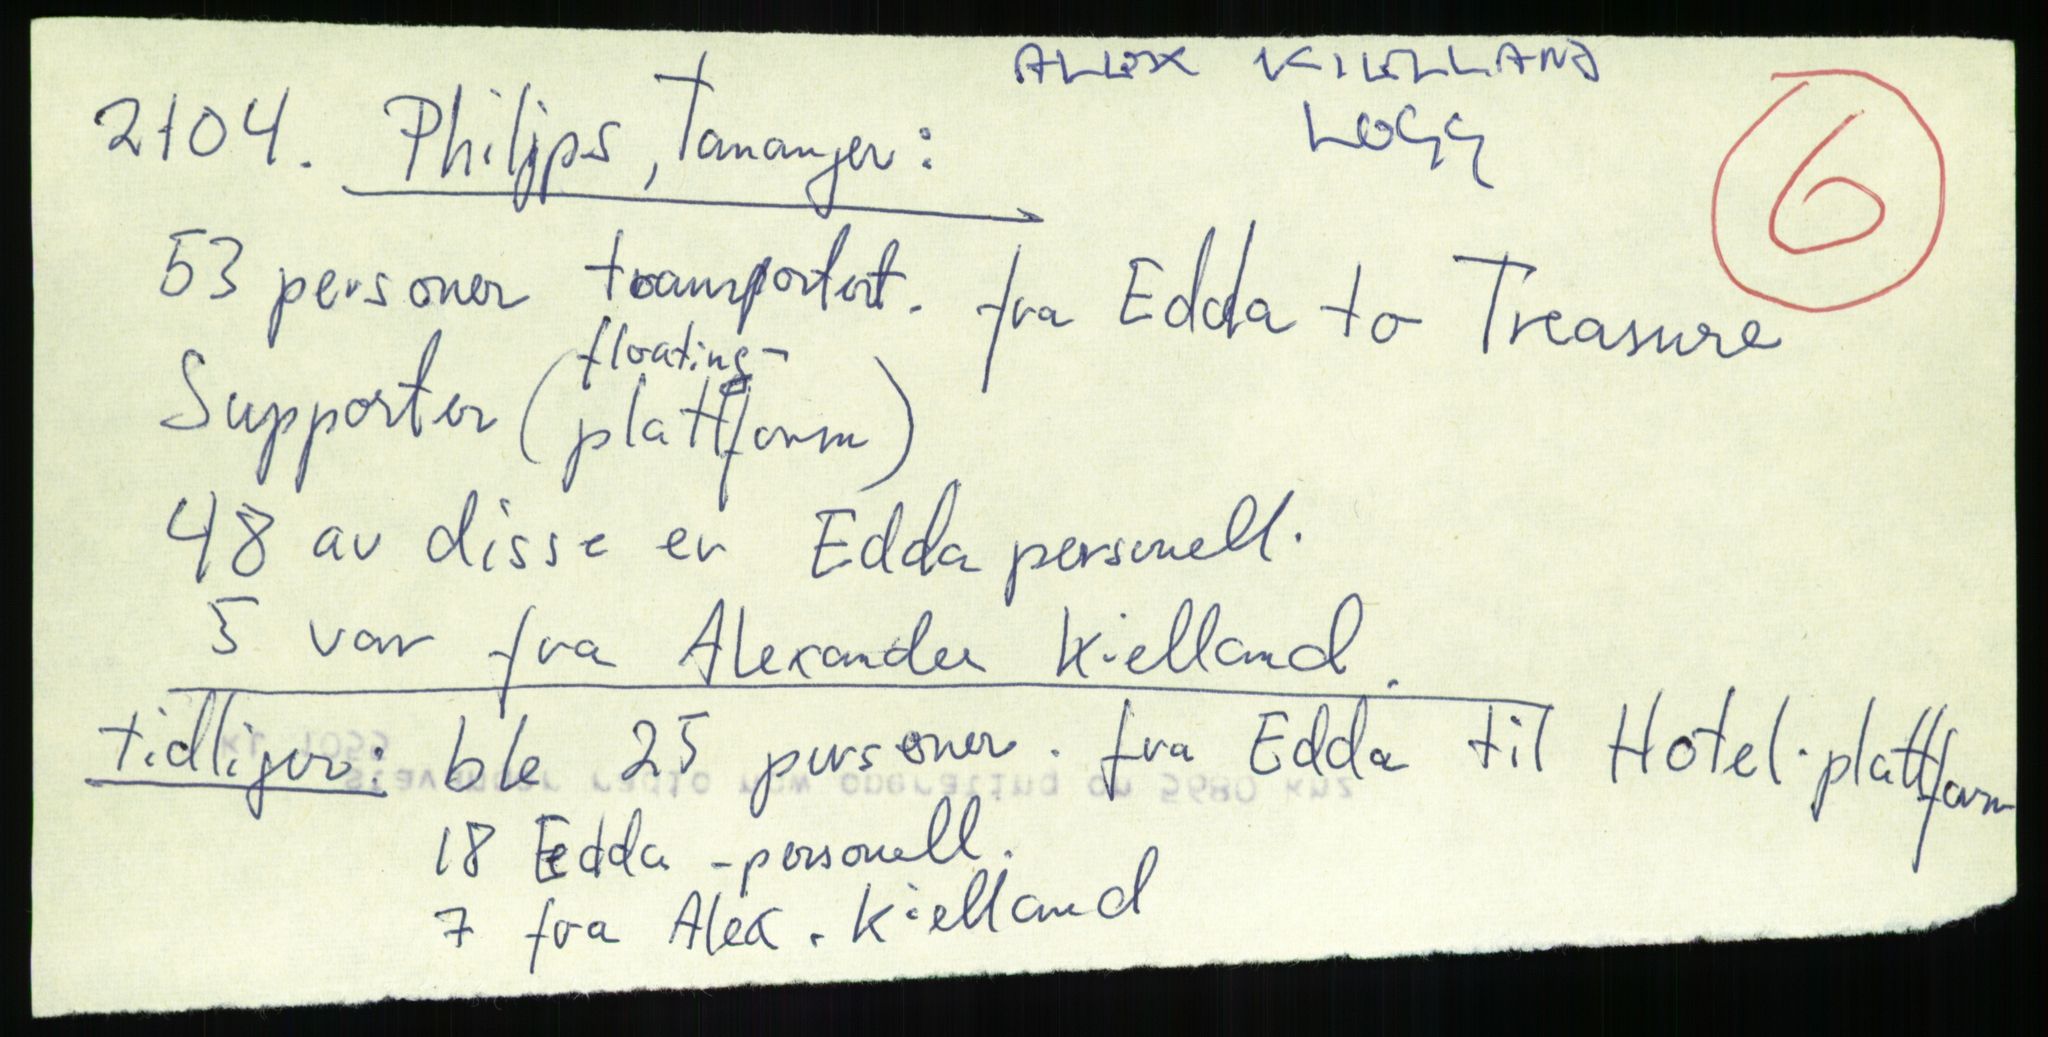 ALEX KIELLAND
LOGG
6
2104. Philips, Tananger:
53 personer transportert. fra Edda to Treasure
Supporter (floating-
plattform)
48 av disse er Edda personell.
5 var fra Alexander Kielland.
tidliger: ble 25 personer. fra Edda til Hotel-plattform
18 Edda-personell.
7 fra Alex. Kielland
stavanger radio now operating on 5680 khz